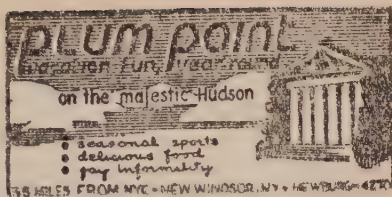 plum point
vacation fun, year round
on the majestic Hudson
• seasonal sports
• delicious food
• gay informality
55 MILES FROM NYC • NEW WINDSOR, N.Y. • NEWBURGH 4270